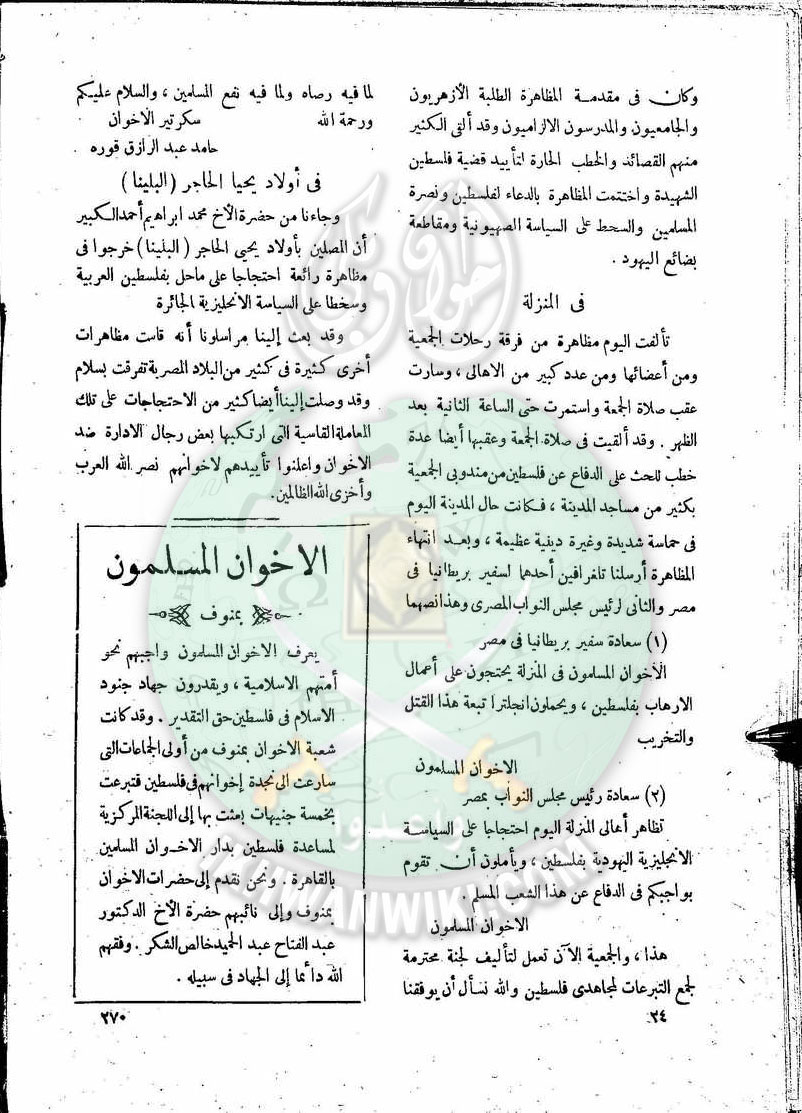 وكان فى مقدمة المظاهرة الطلبة الأزهريون
والجامعيون والمدرسون الالزاميون وقد ألقى الكثير
منهم القصائد والخطب الحارة لتأييد قضية فلسطين
الشهيدة واختتمت المظاهرة بالدعاء لفلسطين ونصرة
المسلمين والسخط على السياسة الصهيونية ومقاطعة
بضائع اليهود .
فى المنزلة
تألفت اليوم مظاهرة من فرقة رحلات الجمعية
ومن أعضائها ومن عدد كبير من الاهالى ، وسارت
عقب صلاة الجمعة واستمرت حتى الساعة الثانية بعد
الظهر . وقد ألقيت فى صلاة الجمعة وعقبها أيضا عدة
خطب للحث على الدفاع عن فلسطين من مندوبى الجمعية
بكثير من مساجد المدينة ، فكانت حال المدينة اليوم
فى حماسة شديدة وغيرة دينية عظيمة ، وبعد انتهاء
المظاهرة أرسلنا تلغرافين أحدها لسفير بريطانيا فى
مصر والثانى لرئيس مجلس النواب المصرى وهذا نصهما
(١) سعادة سفير بريطانيا فى مصر
الأخوان المسلمون فى المنزلة يحتجون على أعمال
الارهاب بفلسطين ، ويحملون انجلترا تبعة هذا القتل
والتخريب
الاخوان المسلمون
(٢) سعادة رئيس مجلس النواب بمصر
تظاهر أهالى المنزلة اليوم احتجاجا على السياسة
الانجليزية اليهودية بفلسطين ، ويأملون أن تقوم
بواجبكم فى الدفاع عن هذا الشعب المسلم .
الاخوان المسلمون
هذا ، والجمعية الآن تعمل لتأليف لجنة محترمة
لجمع التبرعات لمجاهدى فلسطين والله نسأل أن يوفقنا
٣٤
لما فيه رضاه ولما فيه نفع المسلمين ، والسلام عليكم
ورحمة الله سكرتير الاخوان
حامد عبد الرازق قوره
فى أولاد يحيا الحاجر (البلينا)
وجاءنا من حضرة الأخ محمد ابراهيم أحمد الكبير
أن المصلين بأولاد يحيى الحاجر (البلينا) خرجوا فى
مظاهرة رائعة احتجاجا على ماحل بفلسطين العربية
وسخطا على السياسة الانجليزية الجائرة
وقد بعث إلينا مراسلونا أنه قامت مظاهرات
أخرى كثيرة فى كثير من البلاد المصرية تفرقت بسلام
وقد وصلت إلينا أيضا كثير من الاحتجاجات على تلك
المعاملة القاسية التى ارتكبها بعض رجال الادارة ضد
الاخوان واعلنوا تأييدهم لاخوانهم نصر الله العرب
وأخزى الله الظالمين.
الاخوان المسلمون
بمنوف
يعرف الاخوان المسلمون واجبهم نحو
أمتهم الاسلامية ، ويقدرون جهاد جنود
الاسلام فى فلسطين حق التقدير . وقد كانت
شعبة الاخوان بمنوف من أولى الجماعات التى
سارعت الى نجدة إخوانهم فى فلسطين فتبرعت
بخمسة جنيهات بعثت بها إلى اللجنة المركزية
لمساعدة فلسطين بدار الاخوان المسلمين
بالقاهرة . ونحن نقدم إلى حضرات الاخوان
بمنوف وإلى نائبهم حضرة الأخ الدكتور
عبد الفتاح عبد الحميد خالص الشكر . وفقهم
الله دائما إلى الجهاد فى سبيله .
٢٧٠
إخوان ويكي
وأعدوا
IKHWANWIKI.COM